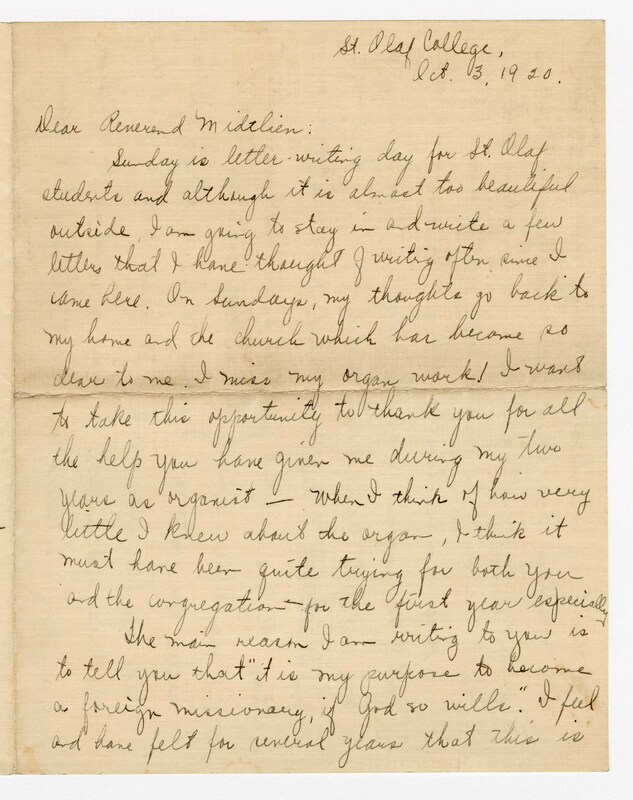 St. Olaf College,
Oct. 3, 1920.
Dear Reverend Midtlien:
Sunday is letter-writing day for St. Olaf
students and although it is almost too beautiful
outside, I am going to stay in and write a few
letters that I have thought of writing often since I
came here. On Sundays, my thoughts go back to
my home and the church which has become so
dear to me. I miss my organ work! I want
to take this opportunity to thank you for all
the help you have given me during my two
years as organist — When I think of how very
little I knew about the organ, I think it
must have been quite trying for both you
and the congregation – for the first year especially
The main reason I am writing to you is
to tell you that "it is my purpose to become
a foreign missionary, if God so wills." I feel
and have felt for several years that this is